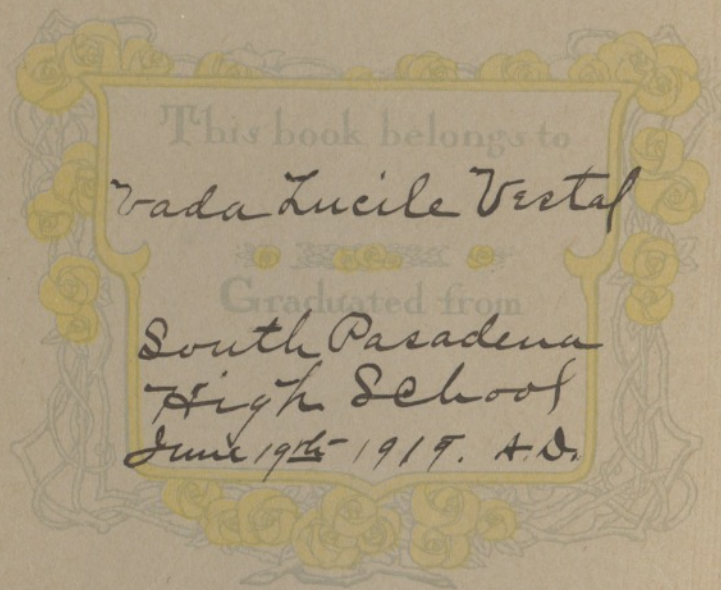 This book belongs to
Vada Lucile Vestal
Graduated from
South Pasadena
High School
June 19th 1919. A.D.